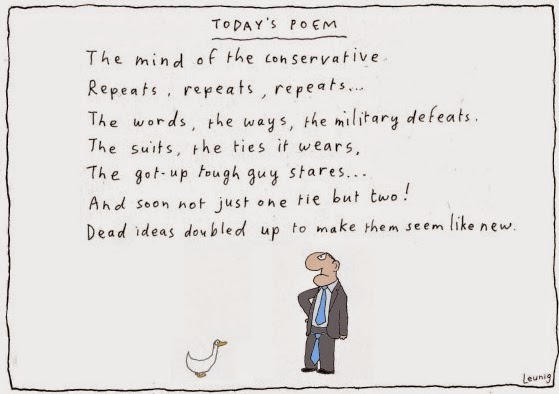 TODAY'S POEM
The mind of the conservative
Repeats, repeats, repeats...
The words, the ways, the military defeats.
The suits, the ties it wears,
The got-up tough guy stares...
And soon not just one tie but two!
Dead ideas doubled up to make them seem like new.
Leunig